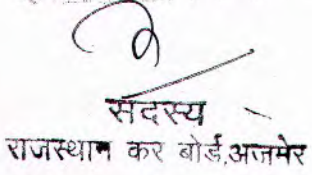 सदस्य
राजस्थान कर बोर्ड,अजमेर